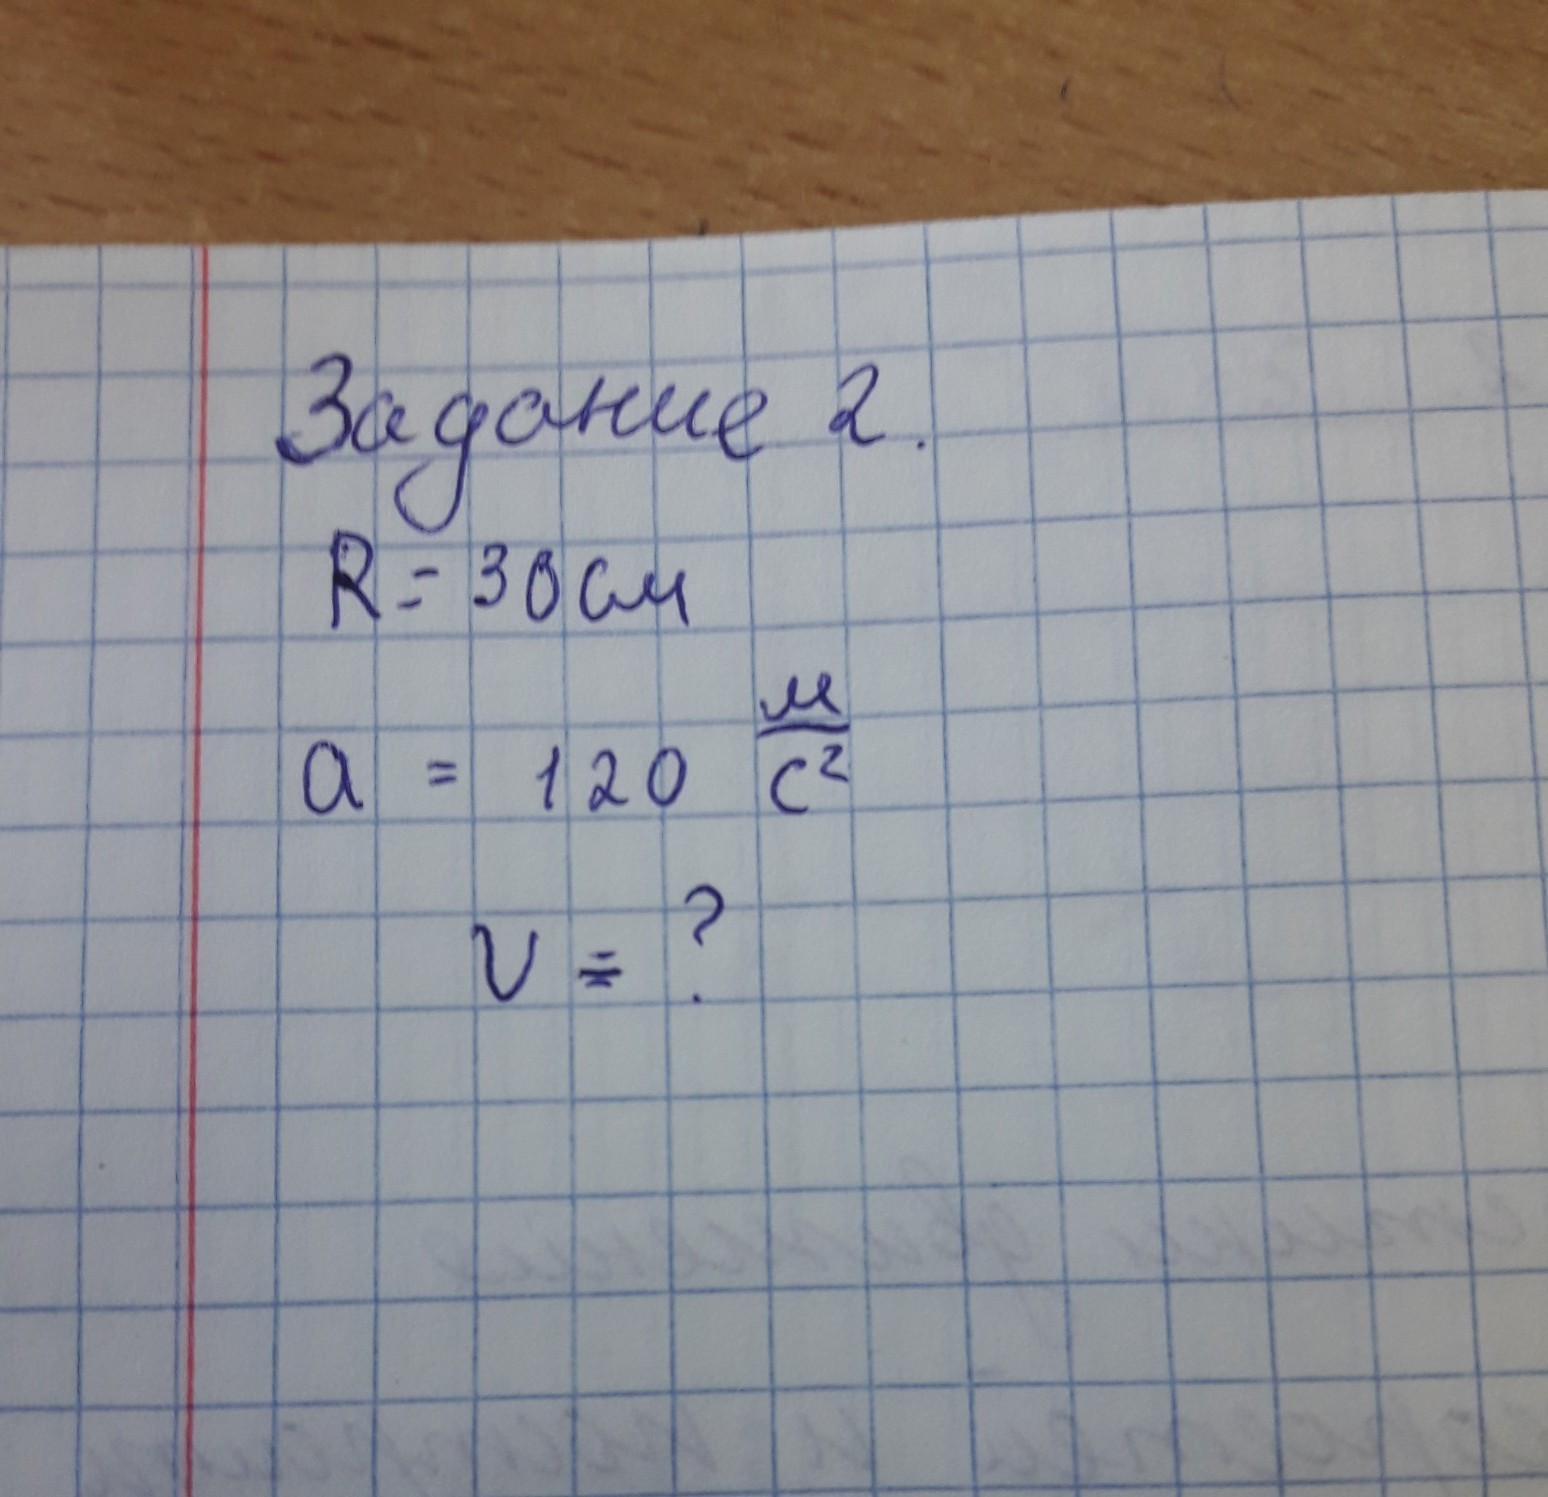 Задание 2.
R = 30 см
a = 120 м/с²
V = ?